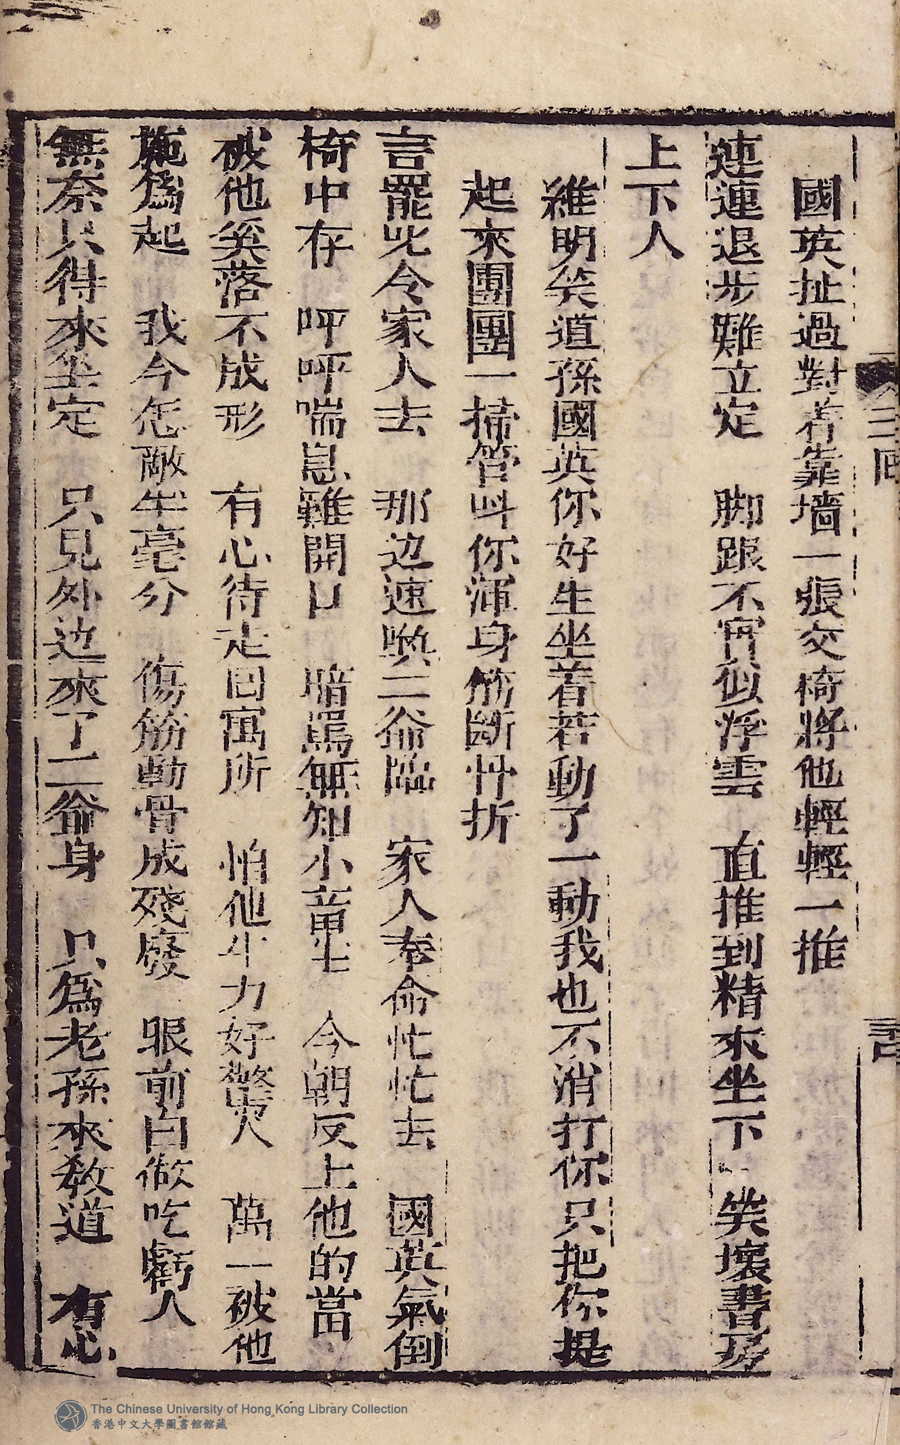 國英扯過對着靠墻一張交椅將他輕輕一推
連連退步難立定 脚跟不穩似浮雲 直推到精來坐下 笑壞書房
上下人
維明笑道孫國英你好生坐着若動了一動我也不消打你只把你提
起來團團一掃管叫你渾身筋斷骨折
言罷比令家人去 那边速喚二爺臨 家人奉命忙忙去 國英氣倒
椅中存 呼呼喘息難開口 暗罵無知小畜生 今朝反上他的當
被他奚落不成形 有心待走回寓所 怕他生力好驚人 萬一被他
施爲起 我今怎敵半毫分 傷筋動骨成殘廢 眼前白做吃虧人
無奈只得來坐定 只見外边來了二爺身 只爲老孫來教道 有心
三回
The Chinese University of Hong Kong Library Collection
香港中文大學圖書館館藏